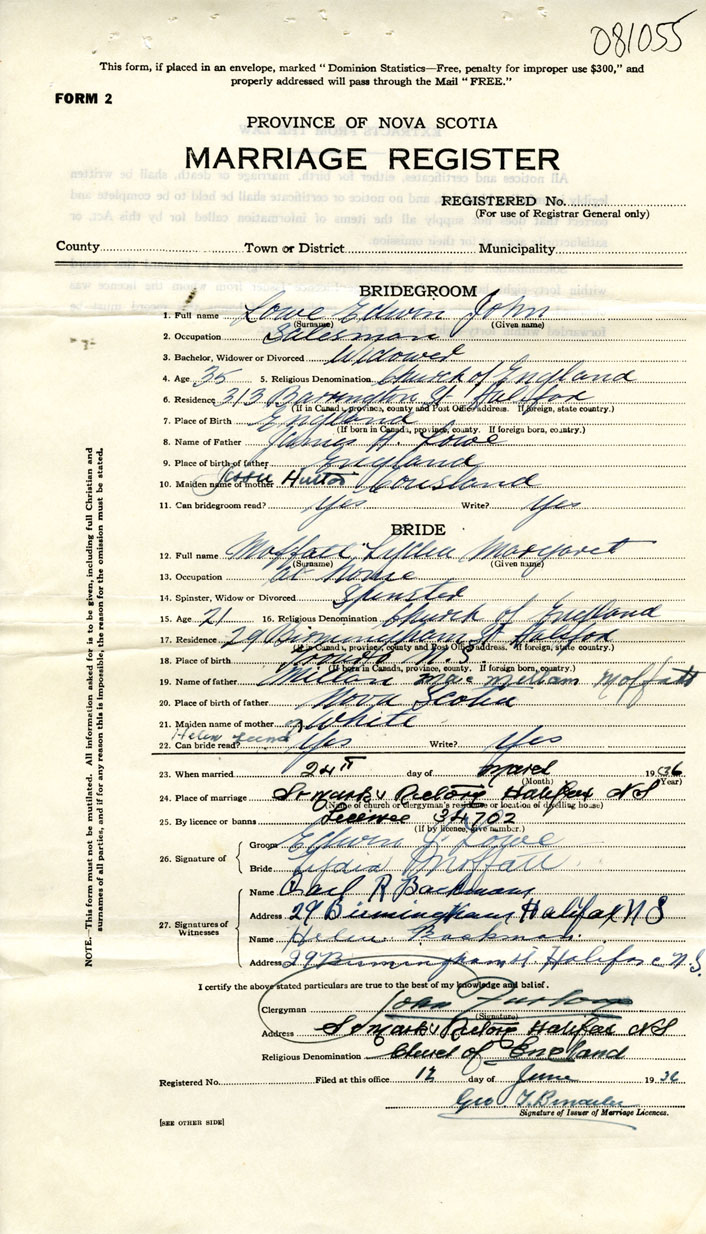 081055
This form, if placed in an envelope, marked "Dominion Statistics—Free, penalty for improper use $300," and
properly addressed will pass through the Mail "FREE."
FORM 2
PROVINCE OF NOVA SCOTIA
MARRIAGE REGISTER
REGISTERED No.
(For use of Registrar General only)
County Town or District Municipality
BRIDEGROOM
1. Full name Lowe Edwin John
(Surname) (Given name)
2. Occupation Salesman
3. Bachelor, Widower or Divorced Widower
4. Age 35 5. Religious Denomination Church of England
6. Residence 313 Barrington St Halifax
(If in Canada, province, county and Post Office address. If foreign, state country.)
7. Place of Birth England
(If born in Canada, province, county. If foreign born, country.)
8. Name of Father James H. Lowe
9. Place of birth of father England
10. Maiden name of mother Jessie Cousland
11. Can bridegroom read? Yes Write? Yes
BRIDE
12. Full name Moffatt Lydia Margaret
(Surname) (Given name)
13. Occupation at Home
14. Spinster, Widow or Divorced Spinster
15. Age 21 16. Religious Denomination Church of England
17. Residence 29 Birmingham St Halifax
(If in Canada, province, county and Post Office address. If foreign, state country.)
18. Place of birth N.S
(If born in Canada, province, county. If foreign born, country.)
19. Name of father Milton Moffatt
20. Place of birth of father Nova Scotia
21. Maiden name of mother White
Helen
22. Can bride read? Yes Write? Yes
23. When married 24th day of March 1936
(Month) (Year)
24. Place of marriage St Mark's Rectory Halifax NS
(Name of church or clergyman's residence or location of dwelling house)
25. By licence or banns License 34702
(If by licence, give number.)
26. Signature of
Groom Edwin J. Lowe
Bride Lydia Moffatt
27. Signatures of Witnesses
Name R Backman
Address 29 Birmingham Halifax N S
Name Helen Backman
Address 29 Birmingham St Halifax N.S.
I certify the above stated particulars are true to the best of my knowledge and belief.
Clergyman John Furlong
(Signature)
Address St Mark's Rectory Halifax NS
Religious Denomination Church of England
Registered No. Filed at this office 12 day of June 1936
Geo
Signature of Issuer of Marriage Licences.
[SEE OTHER SIDE]
NOTE.—This form must not be mutilated. All information asked for is to be given, including full Christian and
surnames of all parties, and if for any reason this is impossible, the reason for the omission must be stated.